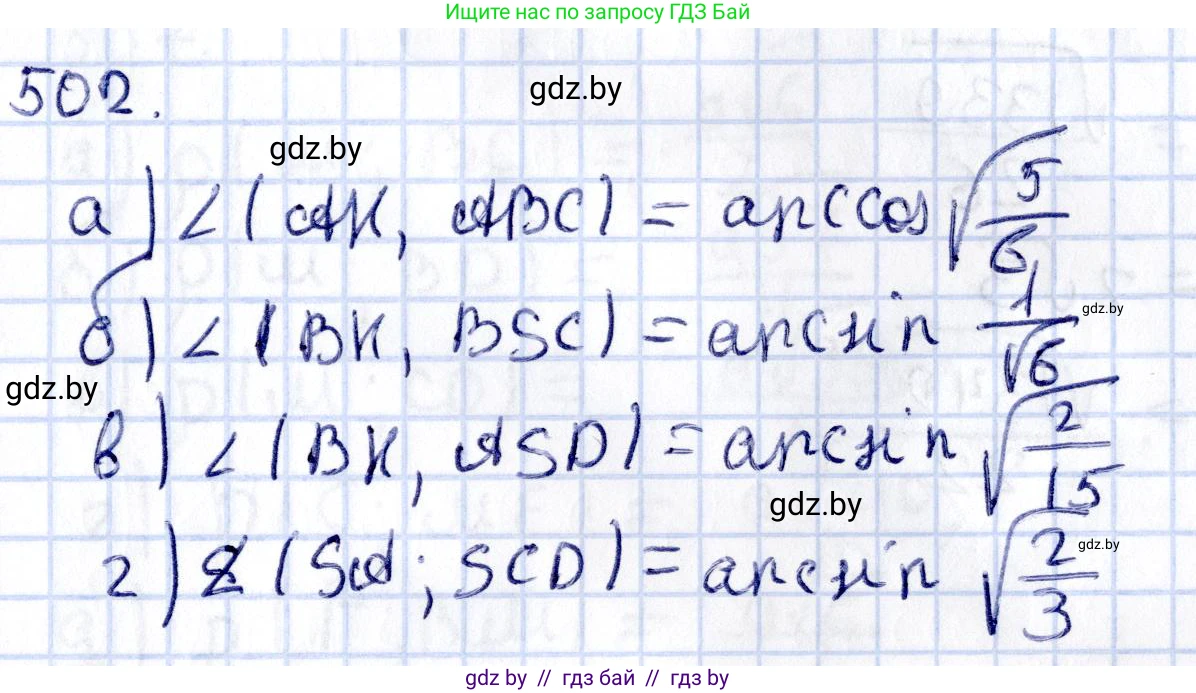 Ищите нас по запросу ГДЗ Бай
502.
gdz.by
gdz.by
а) ∠(AK, ABC) = arccos √(5/6)
б) ∠(BK, BSC) = arcsin 1/√6
gdz.by
gdz.by
в) ∠(BK, ASD) = arcsin √(2/15)
gdz.by
г) ∠(SA; SCD) = arcsin √(2/3)
gdz.by
gdz.by // гдз бай // гдз by